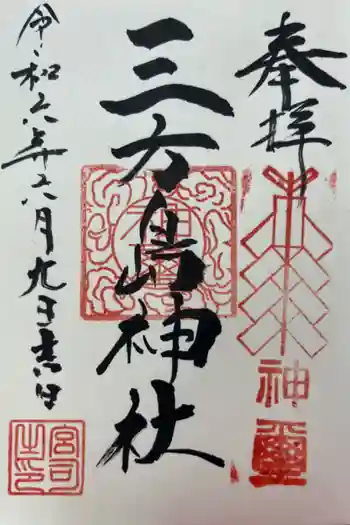 奉拝
神璽
三方島神社
令和六年六月九日吉日
宮司
之印